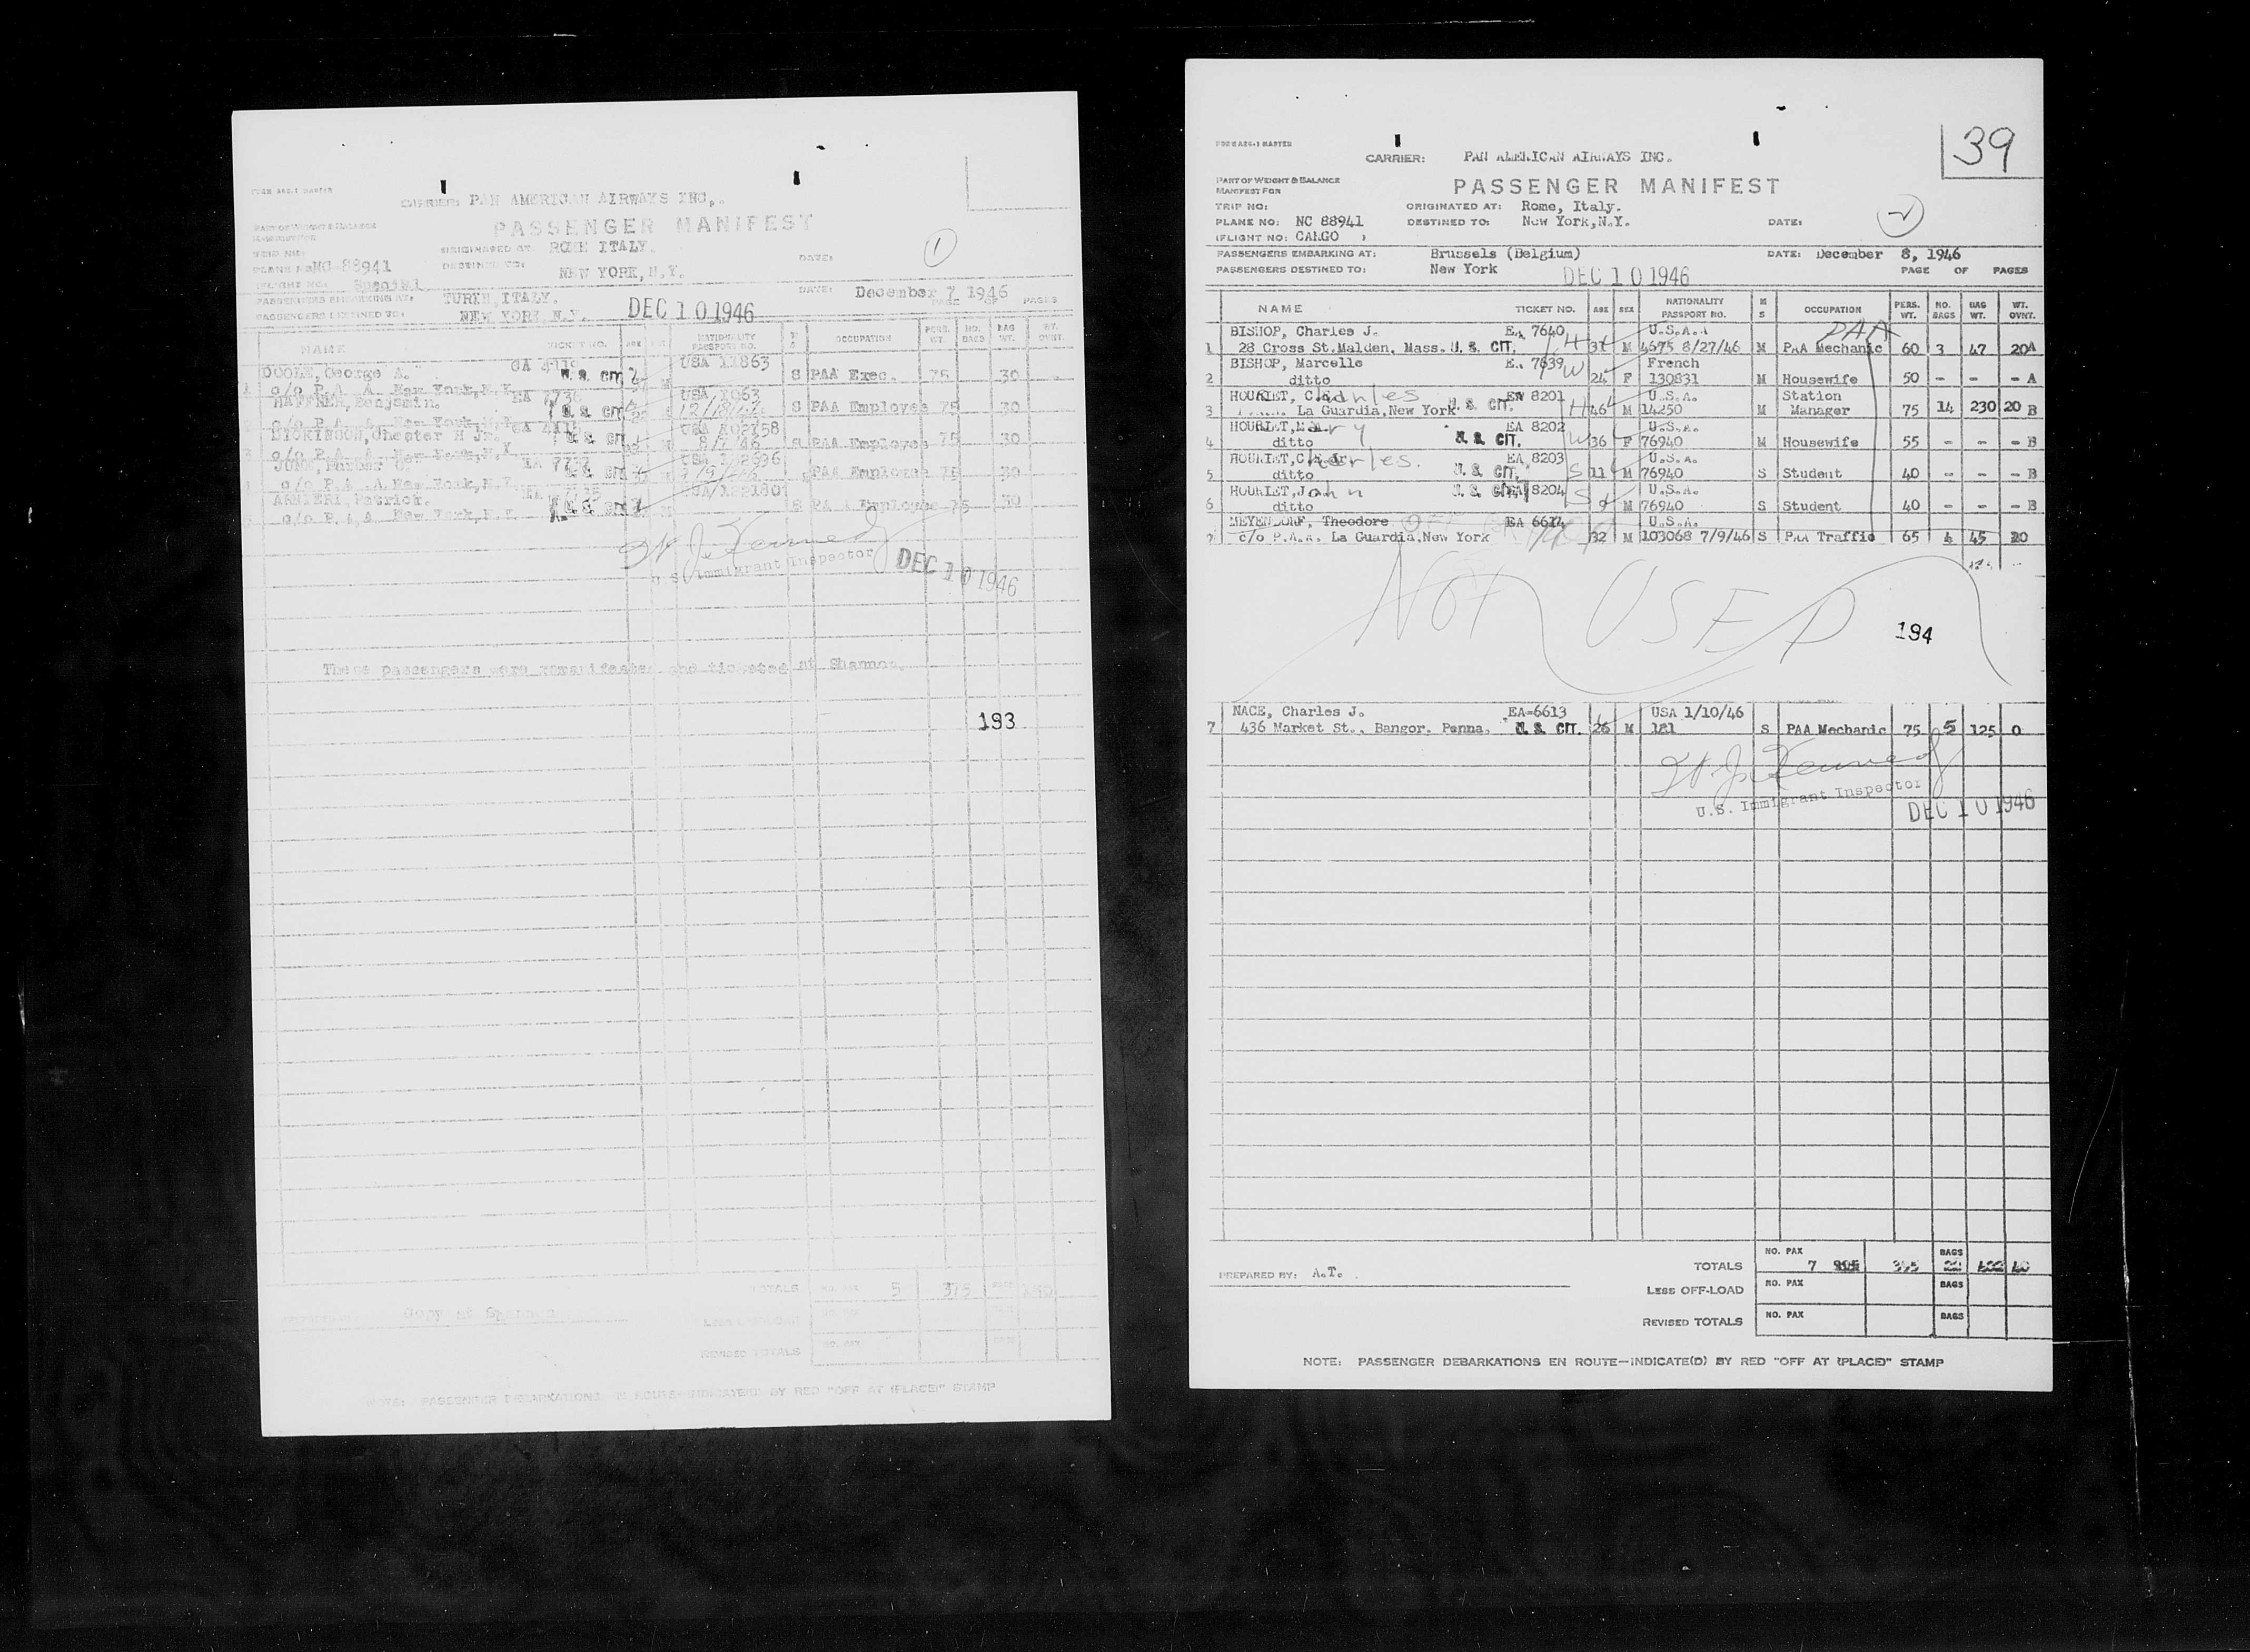 FORM AGC-1 MASTER
CARRIER: PAN AMERICAN AIRWAYS INC,.
PASSENGER MANIFEST
PART OF WEIGHT & BALANCE
MANIFEST FOR
TRIP NO:
ORIGINATED AT: ROME ITALY.
DATE:
1
PLANE NO: NC-88941
DESTINED TO: NEW YORK,N.Y.
(FLIGHT NO: Special
PASSENGERS EMBARKING AT: TURIN,ITALY.
DATE: December 7 1946
PASSENGERS DESTINED TO: NEW YORK N.Y.
DEC 10 1946
PAGE OF PAGES
NAME TICKET NO. AGE SEX NATIONALITY PASSPORT NO. M S OCCUPATION PERS. WT. NO. BAGS BAG WT. WT. OVNT.
DOOLE,George A. USA 11863
1 c/o P.A.A. New York,N.Y. U. S. CIT. M S PAA Exec. 75 30
HAFFNER,Benjamin. EA 7736 USA
c/o P.A.A. New York,N.Y. U. S. CIT. S PAA Employee 75 30
DICKINSON,Chester H Jr. USA
3 c/o P.A.A. New York,N.Y. U. S. CIT. 8/7/46 S PAA Employee 75 30
EA USA
c/o P.A.A. New York,N.Y. U. S. CIT. PAA Employee 75 30
Patrick.
c/o P.A.A. New York,N.Y. U. S. CIT. S PAA Employee 75 30
W. J. Kennedy
U.S. Immigrant Inspector
DEC 10 1946
These passengers were remanifested and ticketed at Shannon.
193
TOTALS NO. PAX 5 375 150
Copy at Shannon
LESS OFF-LOAD
REVISED TOTALS NO. PAX
NOTE: PASSENGER DEBARKATIONS EN ROUTE—INDICATE(D) BY RED "OFF AT (PLACE)" STAMP
39
FORM AGC-1 MASTER
CARRIER: PAN AMERICAN AIRWAYS INC.
PART OF WEIGHT & BALANCE
MANIFEST FOR
PASSENGER MANIFEST
TRIP NO:
ORIGINATED AT: Rome, Italy.
2
PLANE NO: NC 88941
DESTINED TO: New York,N.Y.
DATE:
(FLIGHT NO: CARGO )
PASSENGERS EMBARKING AT: Brussels (Belgium)
DATE: December 8, 1946
PASSENGERS DESTINED TO: New York
DEC 10 1946
PAGE OF PAGES
NAME TICKET NO. AGE SEX NATIONALITY PASSPORT NO. M S OCCUPATION PERS. WT. NO. BAGS BAG WT. WT. OVNT.
PAA
BISHOP, Charles J. EA 7640 H U.S.A.
1 28 Cross St.Malden. Mass. U. S. CIT. M 4675 8/27/46 M PAA Mechanic 60 3 47 20A
BISHOP, Marcelle EA 7639 W French
2 ditto 24 F 130831 M Housewife 50 - - - A
HOURIET, Charles EA 8201 U.S.A. Station
3 La Guardia,New York U. S. CIT. H 46 M 14250 M Manager 75 14 230 20 B
HOURIET,Mary EA 8202 U.S.A.
4 ditto U. S. CIT. W 36 F 76940 M Housewife 55 - - - B
HOURIET,Charles. EA 8203 U.S.A.
5 ditto U. S. CIT. S 11 M 76940 S Student 40 - - - B
HOURIET,John U. S. CIT. EA 8204 S U.S.A.
6 ditto 9 M 76940 S Student 40 - - - B
MEYENDORF, Theodore EA 6614 U.S.A.
7 c/o P.A.A. La Guardia,New York 32 M 103068 7/9/46 S PAA Traffic 65 4 45 20
NOT USED
194
NACE, Charles J. EA-6613 USA 1/10/46
7 436 Market St., Bangor. Penna. U. S. CIT. 26 M 181 S PAA Mechanic 75 5 125 0
W. J. Kennedy
U.S. Immigrant Inspector
DEC 10 1946
TOTALS NO. PAX 7 395 BAGS
PREPARED BY: A.T.
LESS OFF-LOAD NO. PAX BAGS
REVISED TOTALS NO. PAX BAGS
NOTE: PASSENGER DEBARKATIONS EN ROUTE—INDICATE(D) BY RED "OFF AT (PLACE)" STAMP